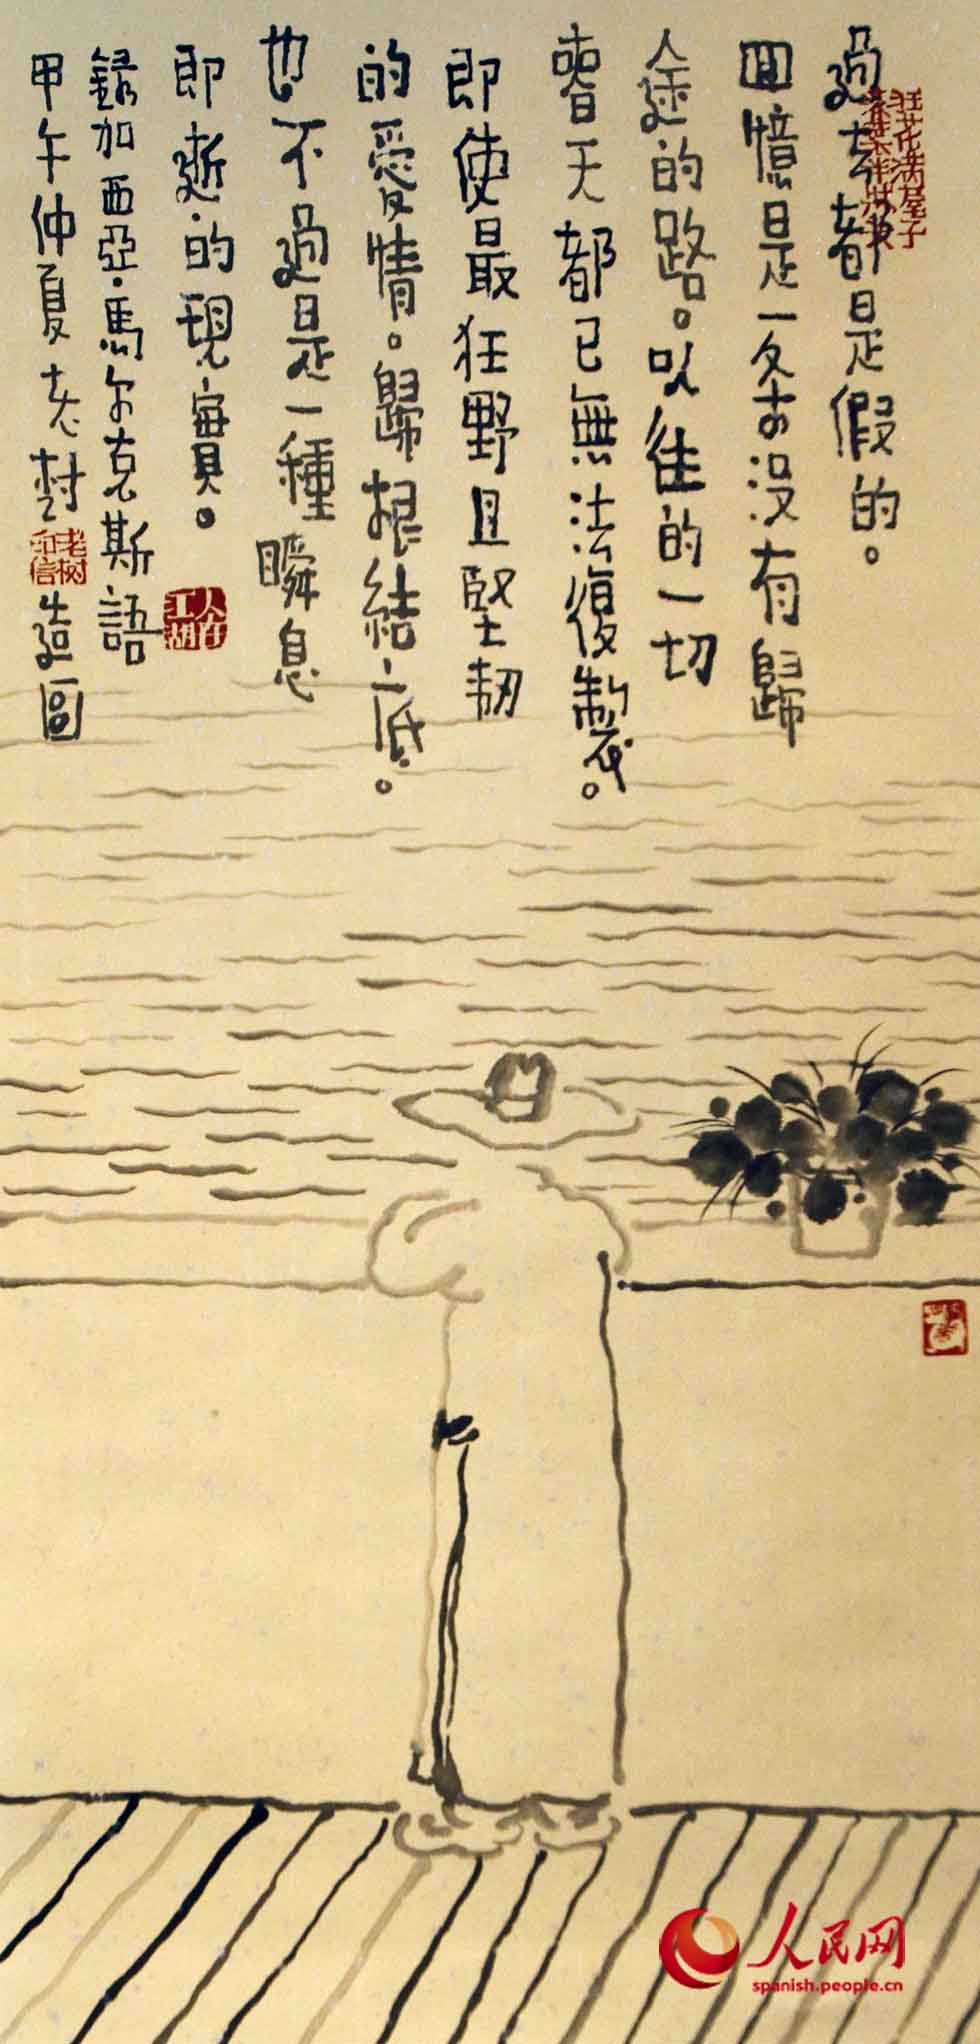 狂花满屋子
過去都是假的。
回憶是一条沒有歸
途的路。以往的一切
春天都已無法復製。
即使最狂野且堅韌
的愛情。歸根結底。
也不過是一種瞬息
即逝的現實。
人在江湖
錄加西亞·馬尔克斯語
甲午仲夏老樹造圖
老树
人民网
spanish.people.cn